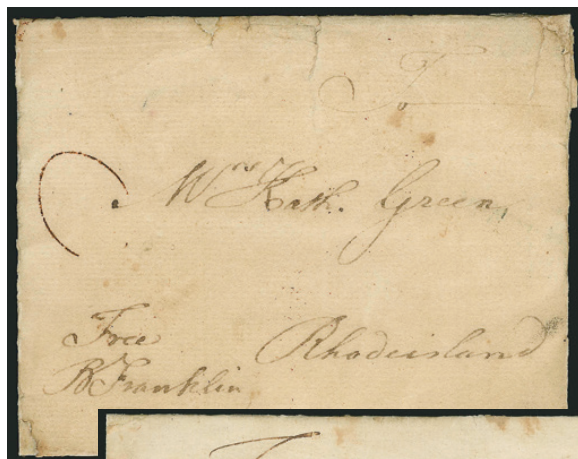 To
Mrs Kath. Green,
Rhodeisland
Free
B Franklin